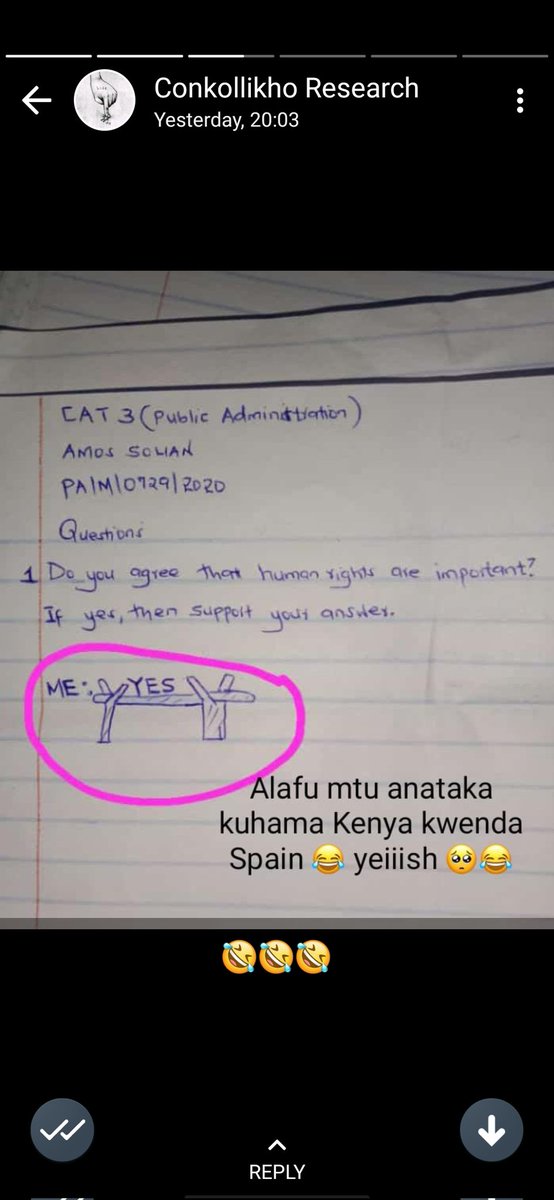 Conkollikho Research
Yesterday, 20:03
CAT 3 (Public Administration)
AMOS SOLIAN
PA/M/0729/2020
Questions
1 Do you agree that human rights are important?
If yes, then support your answer.
ME:. YES
Alafu mtu anataka
kuhama Kenya kwenda
Spain 😂 yeiiish 🥺😂
🤣🤣🤣
REPLY